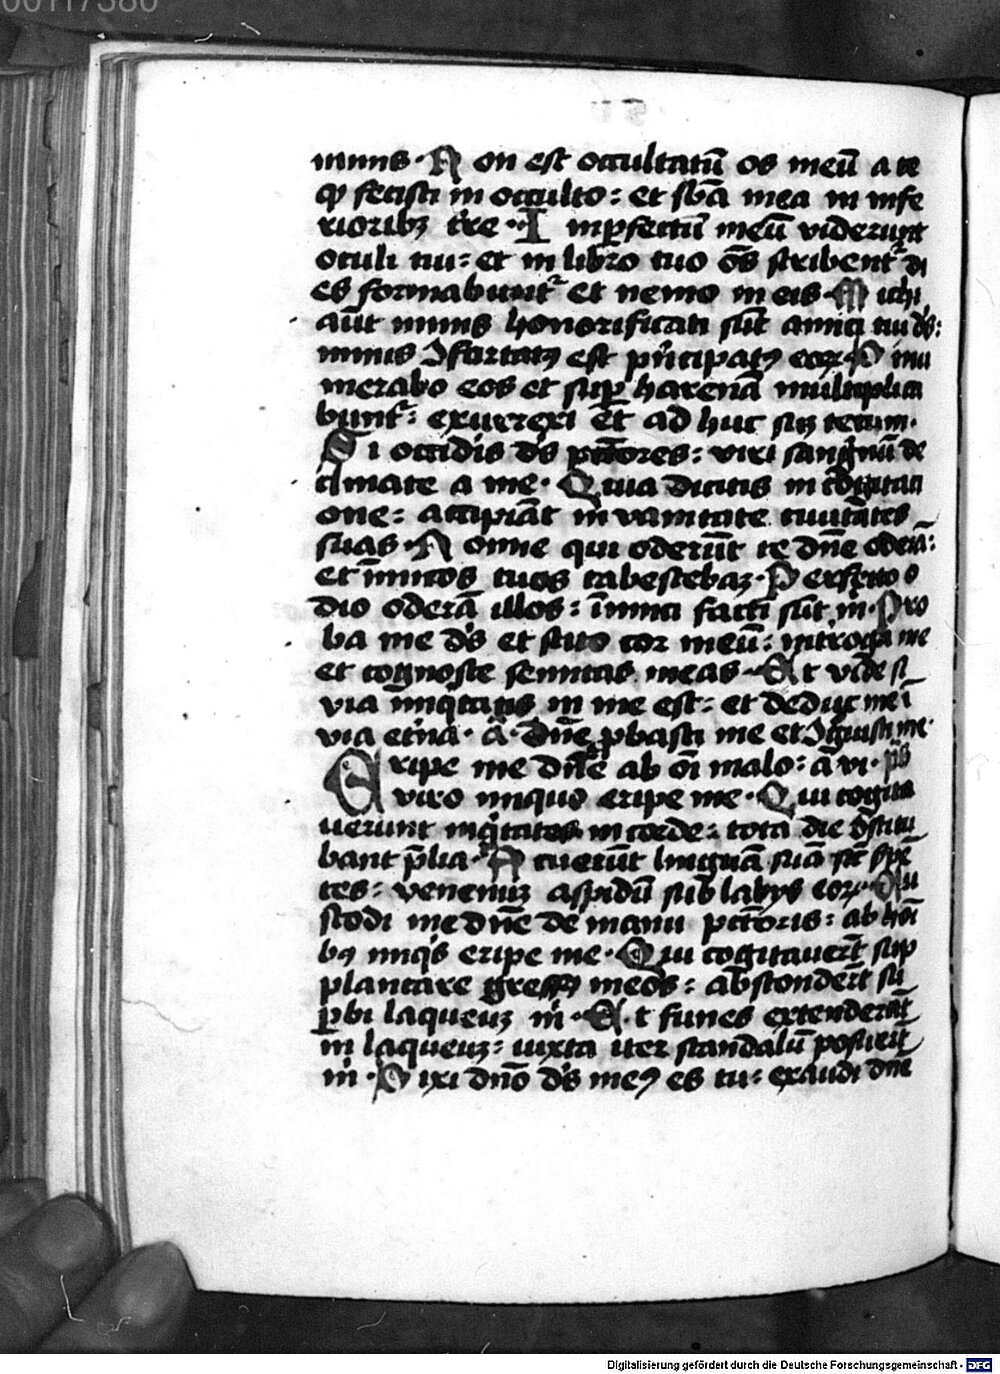 nimis. Non est occultatū os meū a te
qꝫ fecisti in occulto: et sb̄a mea in infe
rioribꝫ tr̄e. Imꝑfectū meū viderunt
oculi tui: et in libro tuo oēs scribent᷑ di
es formabunt᷑ et nemo in eis. Michi
aūt nimis honorificati sūt amici tui ds̄:
nimis ꝯfortatꝰ est pͥncipatꝰ eoꝝ. Dinu
merabo eos et suꝑ harenā multiplica
bunt᷑: exurrexi et ad huc suꝫ tecum.
Si occidis ds̄ pctōres: viri sanguinū de
clinate a me. Quia dicitis in cogitati
one: accipiāt in vanitate ciuitātes
suas. Nonne qui oderūt te dn̄e oderā:
et inimicos tuos tabescebaꝫ. Perfecto o
dio oderā illos: inimici facti sūt m̄. Pro
ba me ds̄ et scito cor meū: int̄roga me
et cognosce semitas meas. Et vide si
via iniqͥtatis in me est: et deduc me ī
via etn̄a. ā. Dn̄e ꝓbasti me et ꝯgnouisti me.
Eripe me dn̄e ab oī malo: ā vi. ps̄
a viro iniquo eripe me. Qui cogita
uerunt iniqͥtates in corde: tota die ꝯstitu
bant p̄lia. Acuerūt linguā suā sic̄ ser̄pē
tes: venenuꝫ aspidū sub labijs eoꝝ. Cu
stodi me dn̄e de manu pctōris: ab hoī
bꝰ iniqͥs eripe me. Qui cogitauerūt sup
plantare gressꝰ meos: absconderūt su
ꝑbi laqueuꝫ m̄. Et funes extenderūt
in laqueuꝫ: iuxta iter scandalū posuerūt
m̄. Dixi dn̄o ds̄ meꝰ es tu: exaudi dn̄e
Digitalisierung gefördert durch die Deutsche Forschungsgemeinschaft - DFG